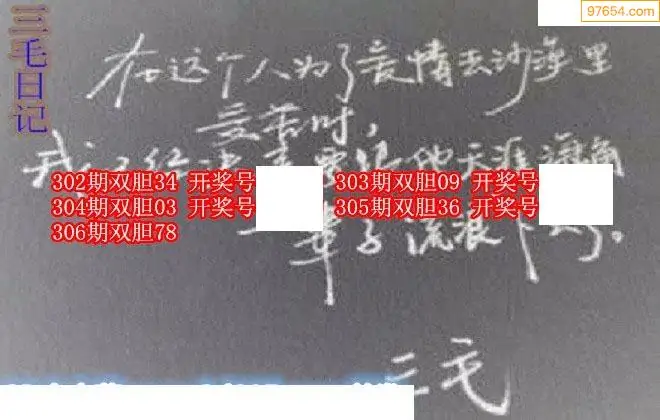 97654.com
三毛日记
在这个人为了爱情去沙漠里
受苦时,
302期双胆34 开奖号
303期双胆09 开奖号
304期双胆03 开奖号
305期双胆36 开奖号
306期双胆78
一辈子流浪下去了。
三毛